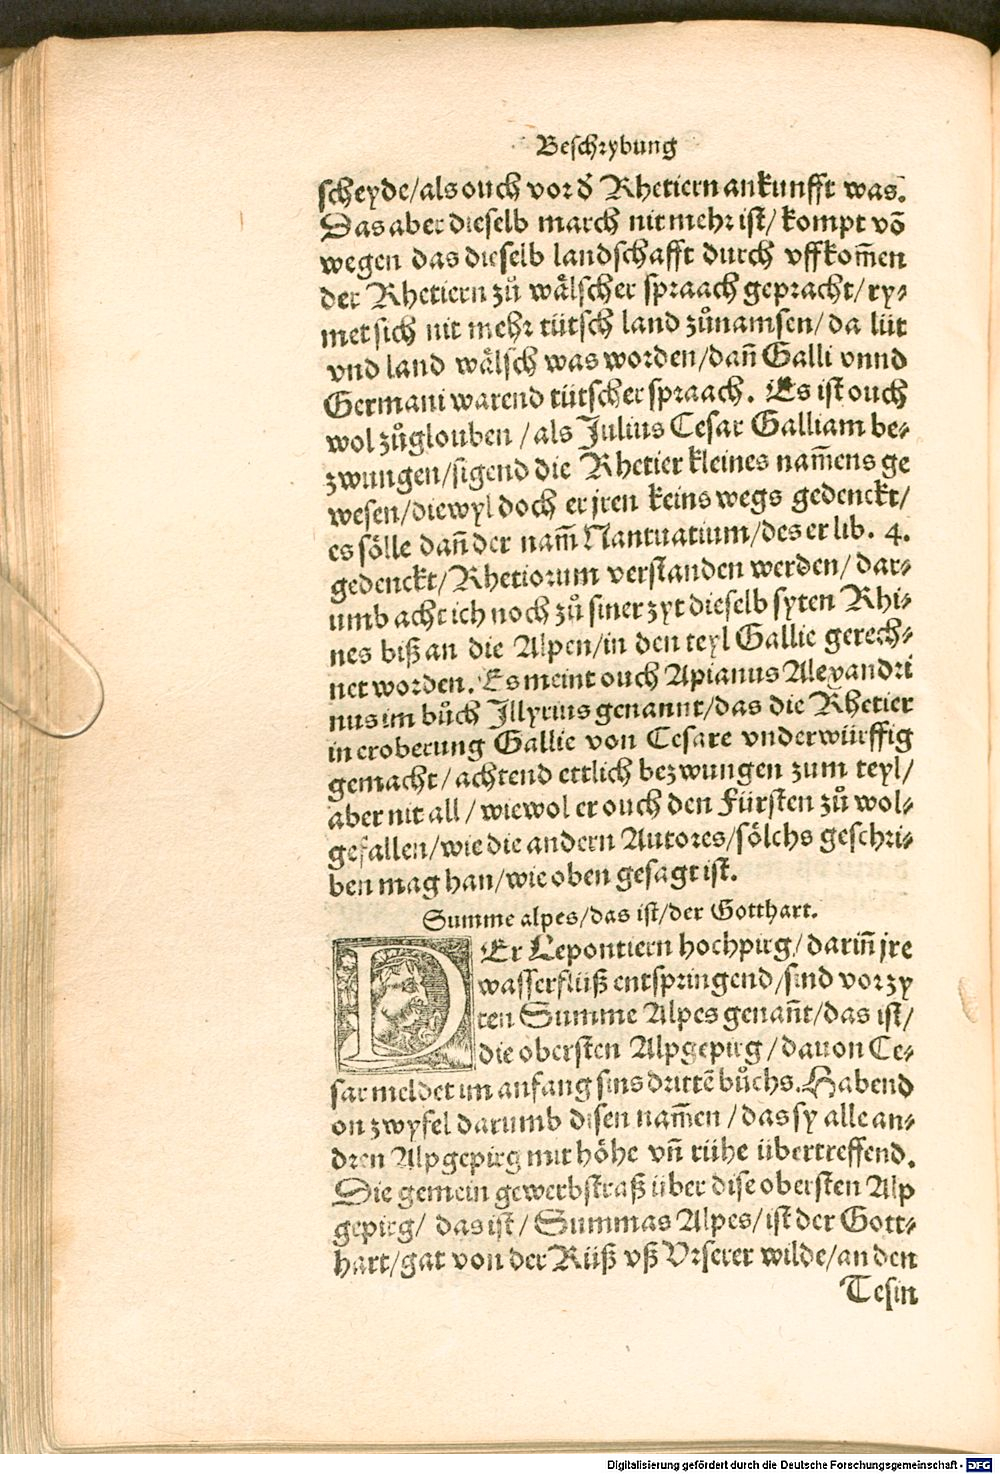 Beschrybung
scheyde/als ouch vor d̕ Rhetiern ankunfft was.
Das aber dieselb march nit mehr ist/ kompt võ
wegen das dieselb landschafft durch vffkom̃en
der Rhetiern zů wälscher spraach gepracht/ ry⸗
met sich nit mehr tütsch land zůnamsen/ da lüt
vnd land wälsch was worden/dañ Galli vnnd
Germani warend tütscher spraach. Es ist ouch
wol zůglouben /als Julius Cesar Galliam be⸗
zwungen/sigend die Rhetier kleines nam̃ens ge
wesen/diewyl doch er jren keins wegs gedenckt/
es sölle dañ der nam̃ Nantuatium/des er lib. 4.
gedenckt/Rhetiorum verstanden werden/ dar⸗
umb acht ich noch zů siner zyt dieselb syten Rhi⸗
nes biß an die Alpen/in den teyl Gallie gerech⸗
net worden. Es meint ouch Apianus Alexandri
nus im bůch Illyrius genannt/das die Rhetier
in eroberung Gallie von Cesare vnderwürffig
gemacht/achtend ettlich bezwungen zum teyl/
aber nit all / wiewol er ouch den Fürsten zů wol⸗
gefallen/wie die andern Autores/sölchs geschri⸗
ben mag han/wie oben gesagt ist.
Summe alpes/das ist/der Gotthart.
DEr Lepontiern hochpirg/ dariñ jre
wasserflüß entspringend/sind vor zy
ten Summe Alpes genañt/das ist/
die obersten Alpgepirg /dauon Ce⸗
sar meldet im anfang sins drittẽ bůchs. Habend
on zwyfel darumb disen nam̃en /das sy alle an⸗
dren Alpgepirg mit höhe vñ rühe übertreffend.
Die gemein gewerbstraß über dise obersten Alp
gepirg/ das ist/ Summas Alpes/ist der Gott⸗
hart/gat von der Rüß vß Vrserer wilde/an den
Tesin
Digitalisierung gefördert durch die Deutsche Forschungsgemeinschaft - DFG